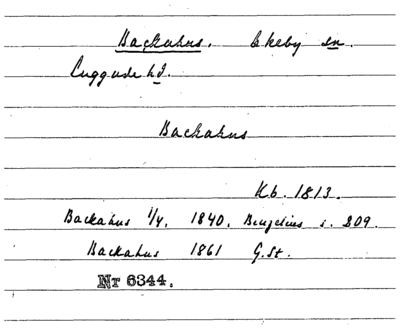 Backahus. Ekeby sn.
Luggude hd.
Backahus
Kb. 1813.
Backahus 1/4. 1840. Bengelius s. 209.
Backahus 1861 G.St.
Nr 6344.